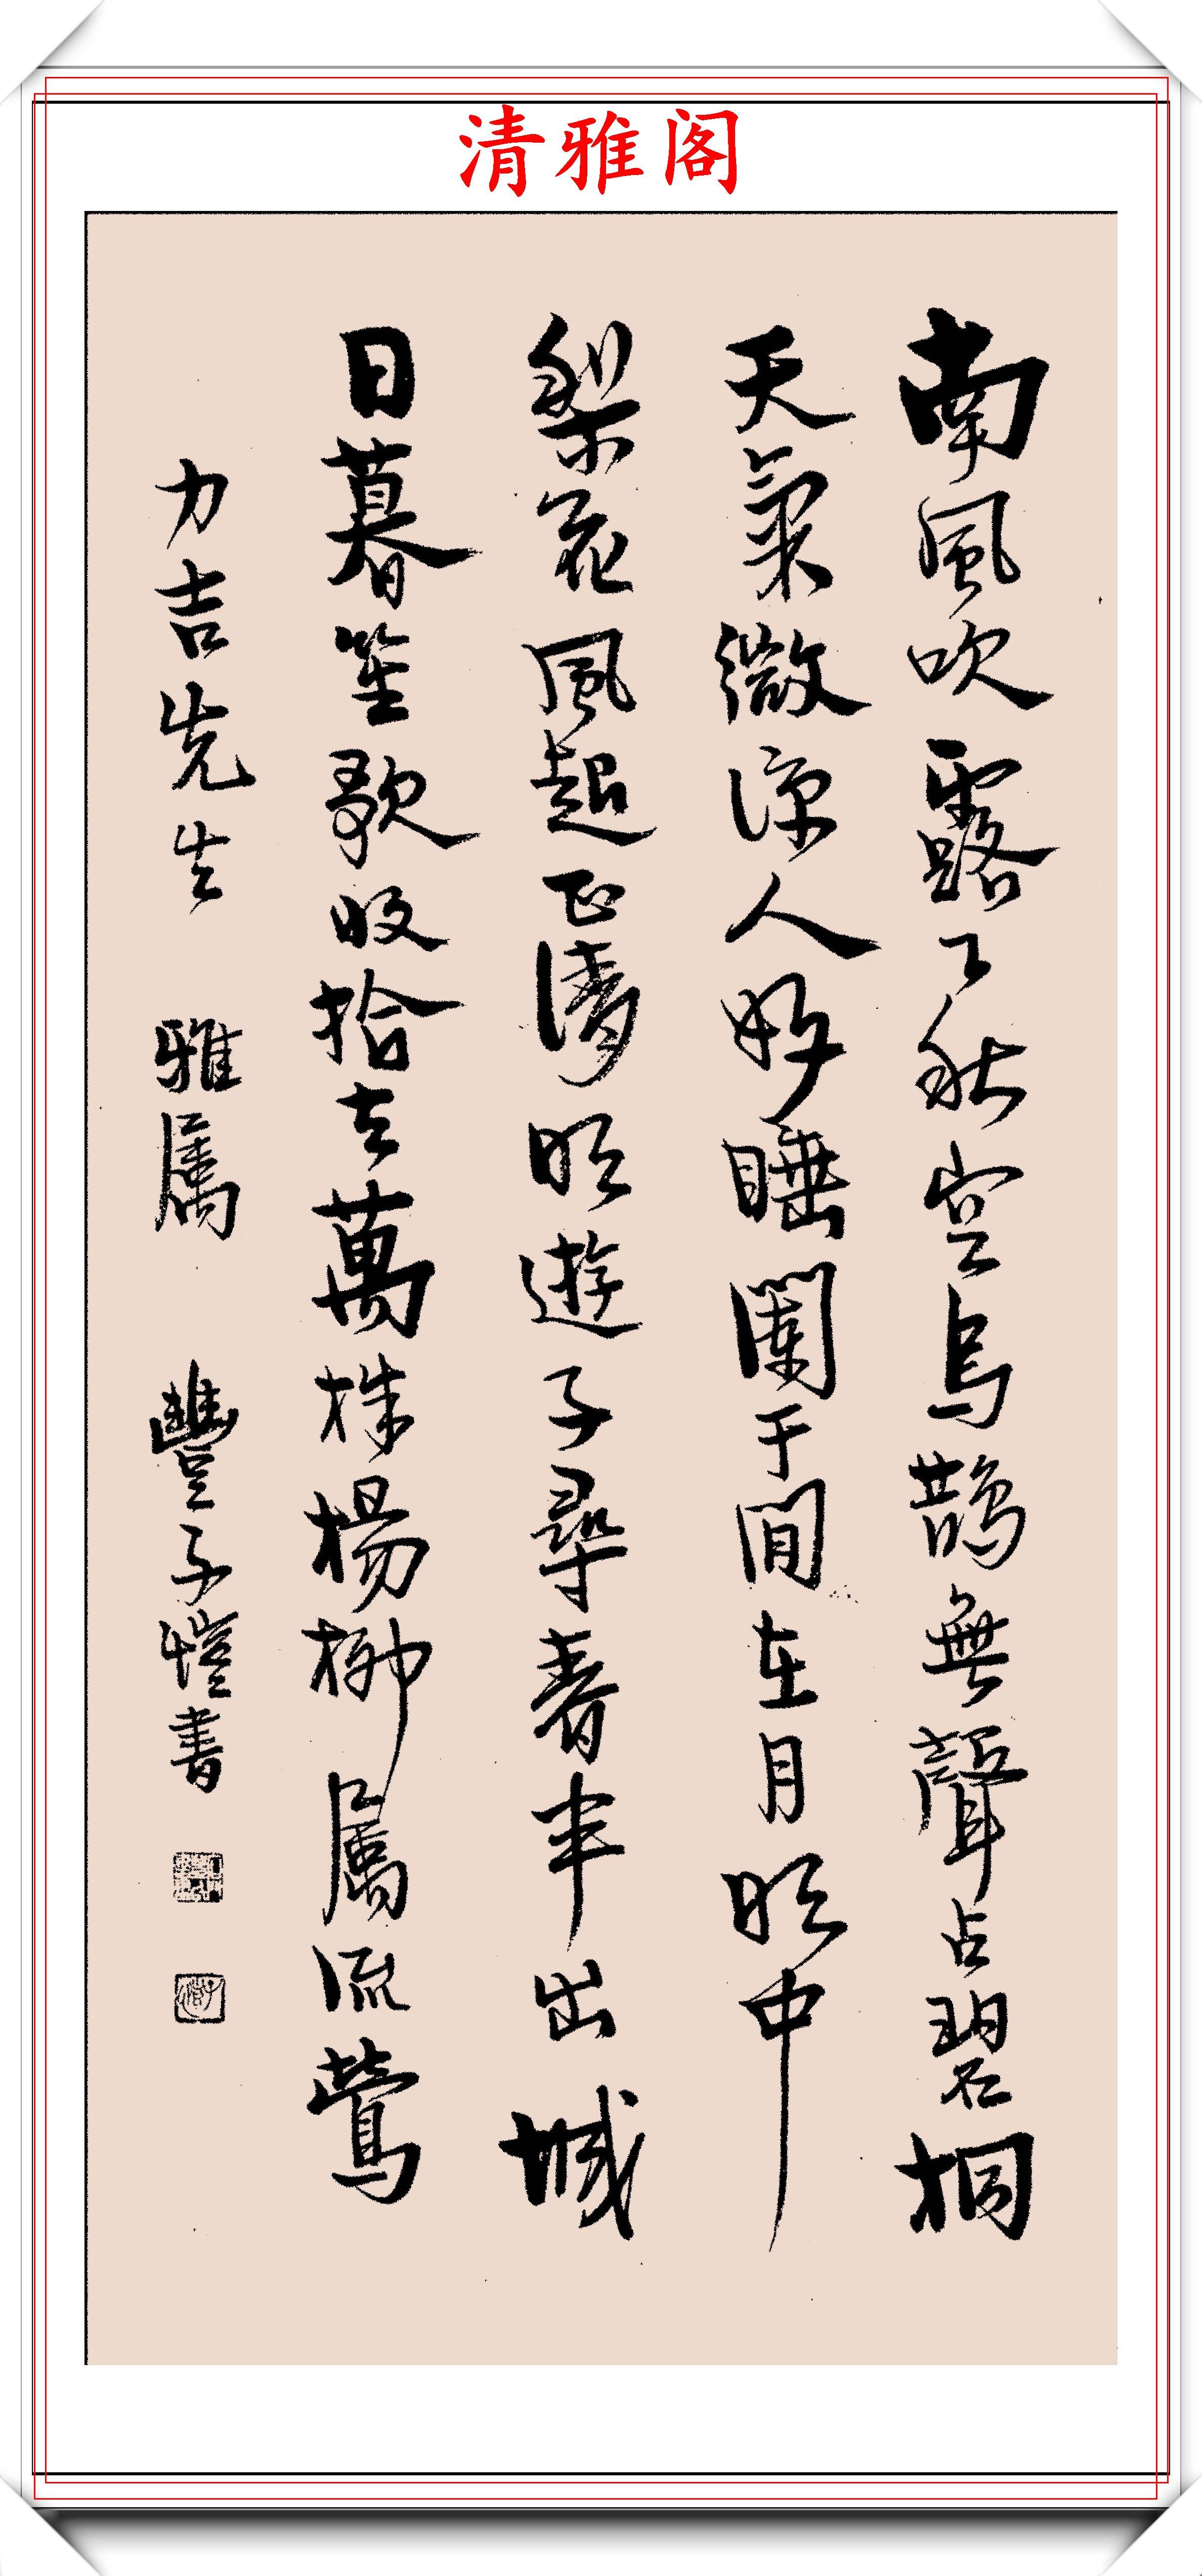 清雅阁
南風吹露下秋空烏鵲無聲占碧桐
天氣微涼人好睡闌干閒在月明中
梨花風起正清明遊子尋春半出城
日暮笙歌收拾去萬株楊柳屬流鶯
力吉先生 雅屬 豐子愷書